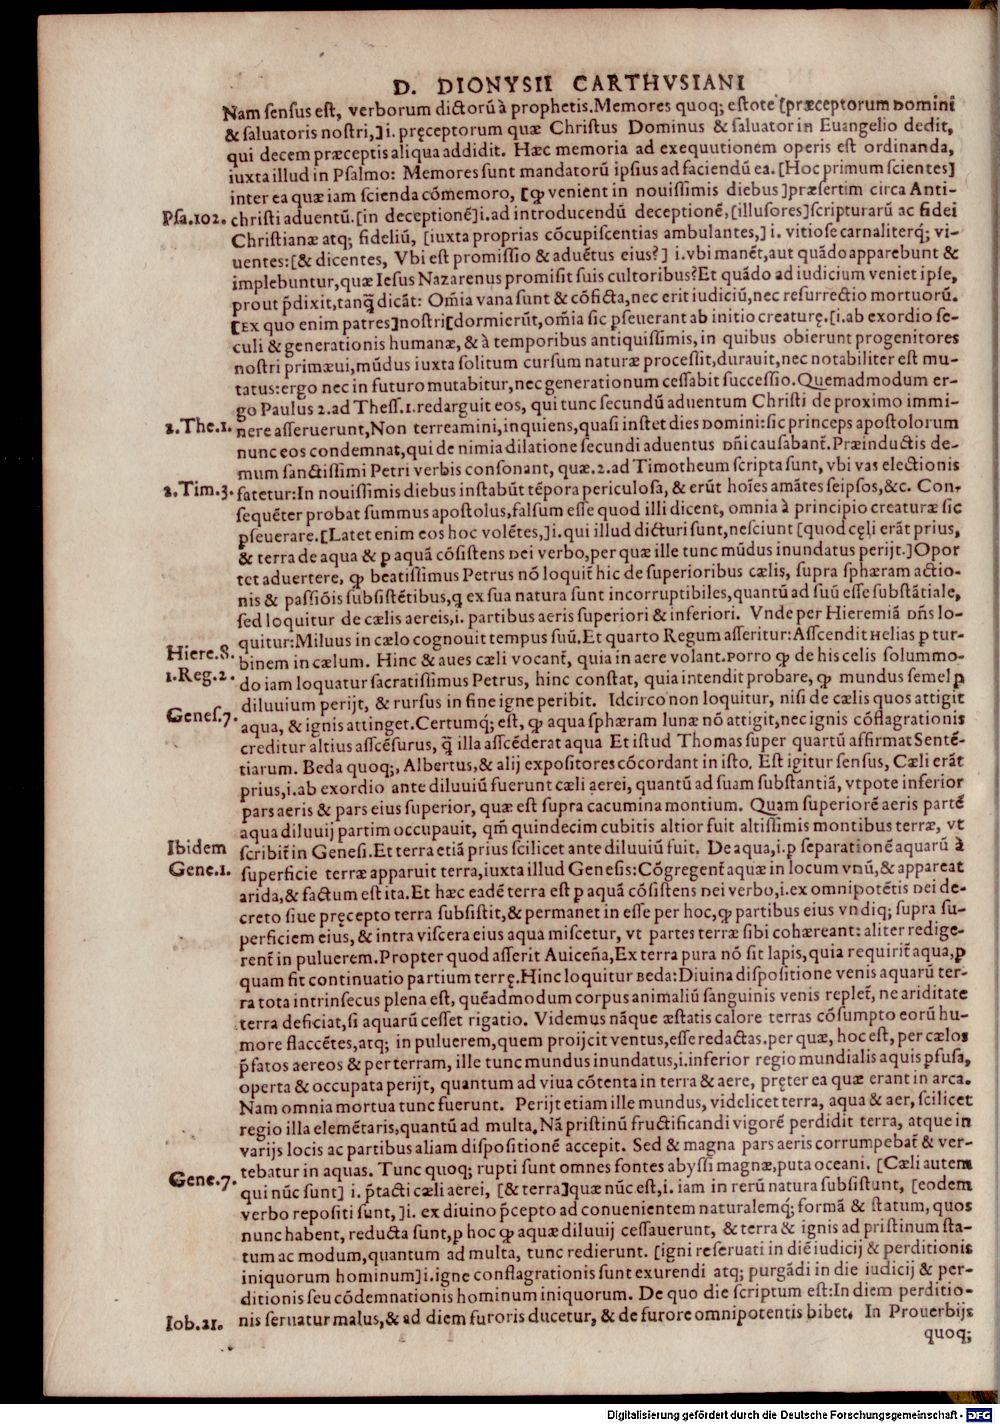 D. DIONYSII CARTHVSIANI
Nam sensus est, verborum dictorũ à prophetis. Memores quoq; estote [præceptorum Domini
& saluatoris nostri,] i. pręceptorum quæ Christus Dominus & saluator in Euangelio dedit,
qui decem præceptis aliqua addidit. Hæc memoria ad exequutionem operis est ordinanda,
iuxta illud in Psalmo: Memores sunt mandatorũ ipsius ad faciendũ ea. [Hoc primum scientes]
inter ea quæ iam scienda cõmemoro, [qꝫ venient in nouissimis diebus] præsertim circa Anti-
Psa.102. christi aduentũ. [in deceptionẽ] i. ad introducendũ deceptionẽ, [illusores] scripturarũ ac fidei
Christianæ atq; fideliũ, [iuxta proprias cõcupiscentias ambulantes,] i. vitiose carnaliterq́; vi-
uentes: [& dicentes, Vbi est promissio & aduẽtus eius?] i. vbi manẽt, aut quãdo apparebunt &
implebuntur, quæ Iesus Nazarenus promisit suis cultoribus? Et quãdo ad iudicium veniet ipse,
prout p̃dixit, tanq̃ dicãt: Om̃ia vana sunt & cõficta, nec erit iudiciũ, nec resurrectio mortuorũ.
[Ex quo enim patres] nostri [dormierũt, om̃ia sic ꝑseuerant ab initio creaturę. [i. ab exordio se-
culi & generationis humanæ, & à temporibus antiquissimis, in quibus obierunt progenitores
nostri primæui, mũdus iuxta solitum cursum naturæ processit, durauit, nec notabiliter est mu-
tatus: ergo nec in futuro mutabitur, nec generationum cessabit successio. Quemadmodum er-
go Paulus 2. ad Thess. 1. redarguit eos, qui tunc secundũ aduentum Christi de proximo immi-
2.The.1. nere asseruerunt, Non terreamini, inquiens, quasi instet dies Domini: sic princeps apostolorum
nunc eos condemnat, qui de nimia dilatione secundi aduentus Dñi causabant̃. Præinductis de-
mum sanctissimi Petri verbis consonant, quæ. 2. ad Timotheum scripta sunt, vbi vas electionis
2.Tim.3. fatetur: In nouissimis diebus instabũt tẽpora periculosa, & erũt hoĩes amãtes seipsos, &c. Con-
sequẽter probat summus apostolus, falsum esse quod illi dicent, omnia à principio creaturæ sic
ꝑseuerare. [Latet enim eos hoc volẽtes,] i. qui illud dicturi sunt, nesciunt [quod cęli erãt prius,
& terra de aqua & ꝑ aquã cõsistens Dei verbo, per quæ ille tunc mũdus inundatus perijt.] Opor
tet aduertere, qꝫ beatissimus Petrus nõ loquit̃ hic de superioribus cælis, supra sphæram actio-
nis & passiõis subsistẽtibus, q ex sua natura sunt incorruptibiles, quantũ ad suũ esse substãtiale,
sed loquitur de cælis aereis, i. partibus aeris superiori & inferiori. Vnde per Hieremiã Dñs lo-
Hiere.8. quitur: Miluus in cælo cognouit tempus suũ. Et quarto Regum asseritur: Asscendit Helias ꝑ tur-
1.Reg.2. binem in cælum. Hinc & aues cæli vocant̃, quia in aere volant. Porro qꝫ de his celis solummo-
do iam loquatur sacratissimus Petrus, hinc constat, quia intendit probare, qꝫ mundus semel ꝑ
Genes.7. diluuium perijt, & rursus in fine igne peribit. Idcirco non loquitur, nisi de cælis quos attigit
aqua, & ignis attinget. Certumq́; est, qꝫ aqua sphæram lunæ nõ attigit, nec ignis cõflagrationis
creditur altius asscẽsurus, q̃ illa asscẽderat aqua Et istud Thomas super quartũ affirmat Sentẽ-
tiarum. Beda quoq;, Albertus, & alij expositores cõcordant in isto. Est igitur sensus, Cæli erãt
prius, i. ab exordio ante diluuiũ fuerunt cæli aerei, quantũ ad suam substantiã, vtpote inferior
pars aeris & pars eius superior, quæ est supra cacumina montium. Quam superiorẽ aeris partẽ
aqua diluuij partim occupauit, qm̃ quindecim cubitis altior fuit altissimis montibus terræ, vt
Ibidem scribit̃ in Genesi. Et terra etiã prius scilicet ante diluuiũ fuit. De aqua, i. ꝑ separationẽ aquarũ à
Gene.1. superficie terræ apparuit terra, iuxta illud Genesis: Cõgregent̃ aquæ in locum vnũ, & appareat
arida, & factum est ita. Et hæc eadẽ terra est ꝑ aquã cõsistens Dei verbo, i. ex omnipotẽtis Dei de-
creto siue pręcepto terra subsistit, & permanet in esse per hoc, qꝫ partibus eius vndiq; supra su-
perficiem eius, & intra viscera eius aqua miscetur, vt partes terræ sibi cohæreant: aliter redige-
rent̃ in puluerem. Propter quod asserit Auiceña, Ex terra pura nõ fit lapis, quia requirit̃ aqua, ꝑ
quam fit continuatio partium terrę. Hinc loquitur Beda: Diuina dispositione venis aquarũ ter-
ra tota intrinsecus plena est, quẽadmodum corpus animaliũ sanguinis venis replet̃, ne ariditate
terra deficiat, si aquarũ cesset rigatio. Videmus nãque æstatis calore terras cõsumpto eorũ hu-
more flaccẽtes, atq; in puluerem, quem proijcit ventus, esse redactas. per quæ, hoc est, per cælos
p̃fatos aereos & per terram, ille tunc mundus inundatus, i. inferior regio mundialis aquis ꝑfusa,
operta & occupata perijt, quantum ad viua cõtenta in terra & aere, pręter ea quæ erant in arca.
Nam omnia mortua tunc fuerunt. Perijt etiam ille mundus, videlicet terra, aqua & aer, scilicet
regio illa elemẽtaris, quantũ ad multa. Nã pristinũ fructificandi vigorẽ perdidit terra, atque in
varijs locis ac partibus aliam dispositionẽ accepit. Sed & magna pars aeris corrumpebat̃ & ver-
Gene.7. tebatur in aquas. Tunc quoq; rupti sunt omnes fontes abyssi magnæ, puta oceani. [Cæli autem
qui nũc sunt] i. p̃tacti cæli aerei, [& terra] quæ nũc est, i. iam in rerũ natura subsistunt, [eodem
verbo repositi sunt,] i. ex diuino p̃cepto ad conuenientem naturalemq́; formã & statum, quos
nunc habent, reducta sunt, ꝑ hoc qꝫ aquæ diluuij cessauerunt, & terra & ignis ad pristinum sta-
tum ac modum, quantum ad multa, tunc redierunt. [igni reseruati in diẽ iudicij & perditionis
iniquorum hominum] i. igne conflagrationis sunt exurendi atq; purgãdi in die iudicij & per-
ditionis seu cõdemnationis hominum iniquorum. De quo die scriptum est: In diem perditio-
Iob.21. nis seruatur malus, & ad diem furoris ducetur, & de furore omnipotentis bibet. In Prouerbijs
quoq;
Digitalisierung gefördert durch die Deutsche Forschungsgemeinschaft - DFG